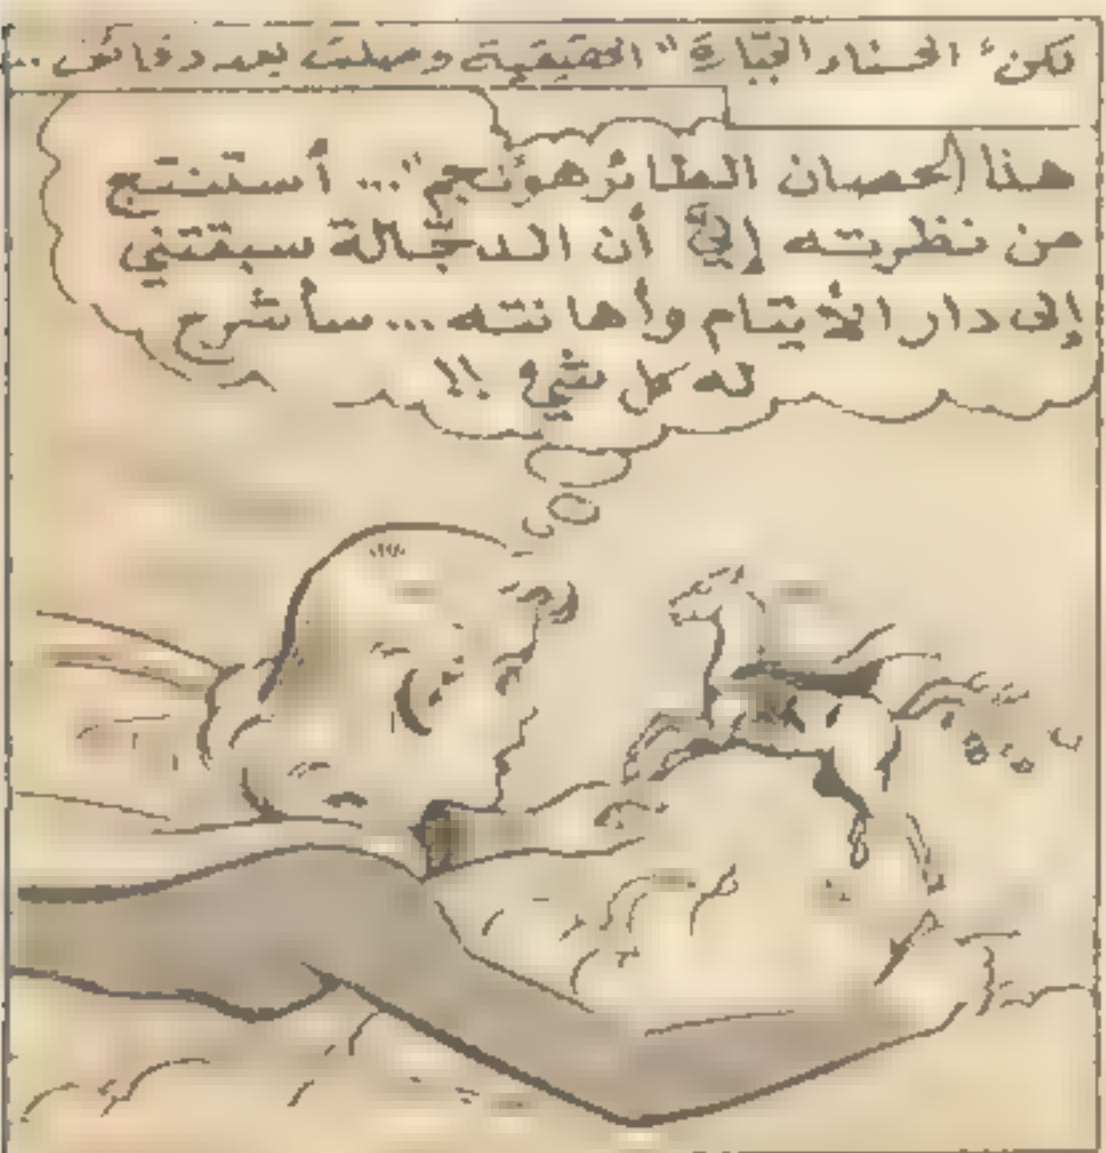 لكن "الحسناء الجبّارة" الحقيقية وصلت بعد دقائق ...
هذا الحصان الطائر هو "نجم" ... أستنتج
من نظرته إليّ أن الدجّالة سبقتني
إلى دار الأيتام وأهانته ... سأشرح
له كل شيء !!